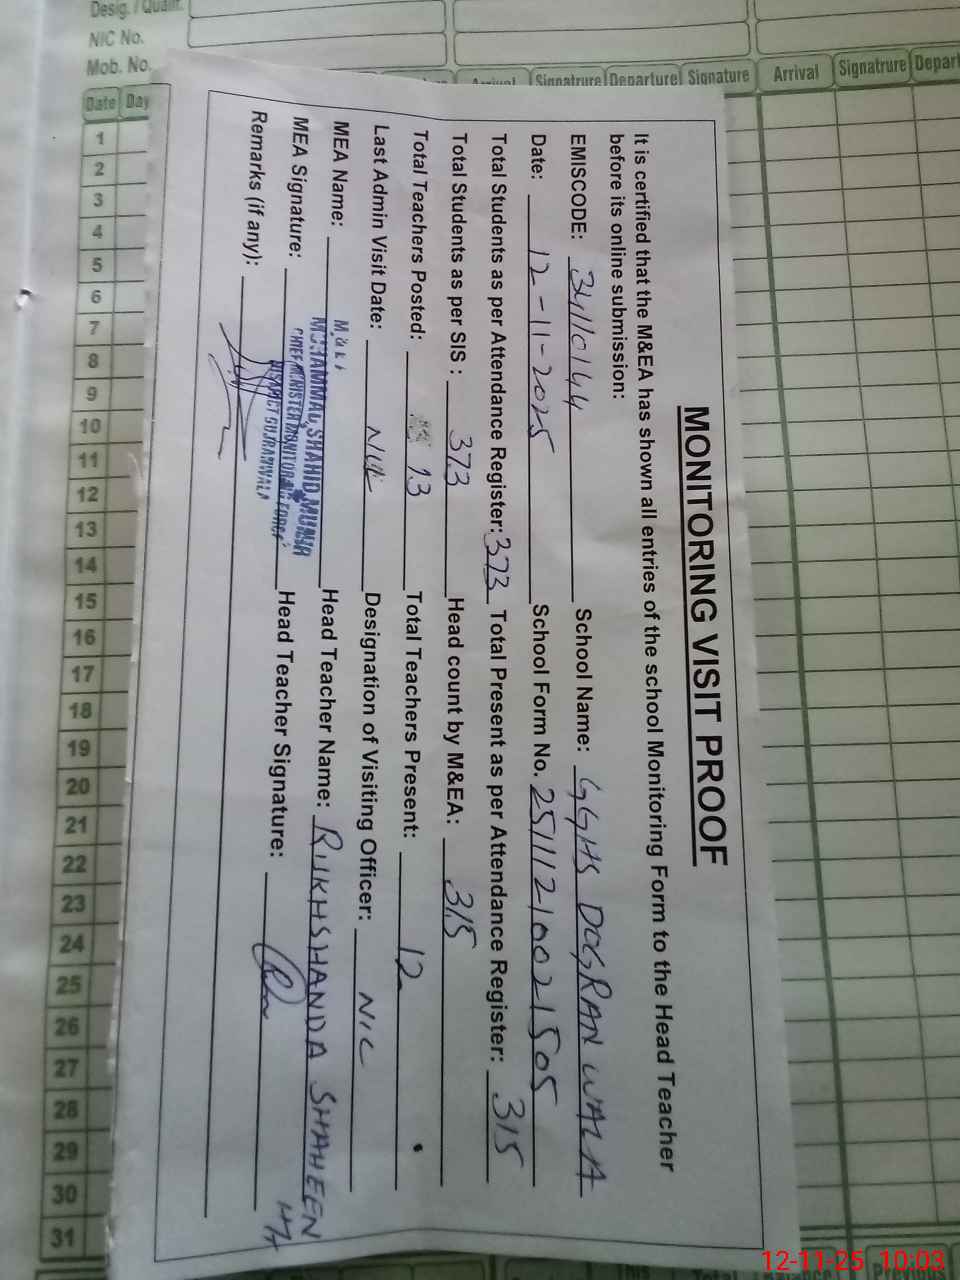 Desig. / Qualif.
NIC No.
Mob. No.
Signatrure Departure Signature Arrival Signatrure Depart
Date Day
1
2
3
4
5
6
7
8
9
10
11
12
13
14
15
16
17
18
19
20
21
22
23
24
25
26
27
28
29
30
31
MONITORING VISIT PROOF
It is certified that the M&EA has shown all entries of the school Monitoring Form to the Head Teacher
before its online submission:
EMISCODE: 34110144 School Name: GGHS DOGRAN WALA
Date: 12-11-2025 School Form No. 25111210021505
Total Students as per Attendance Register: 373 Total Present as per Attendance Register: 315
Total Students as per SIS : 373 Head count by M&EA: 315
Total Teachers Posted: 13 Total Teachers Present: 12
Last Admin Visit Date: Nil Designation of Visiting Officer: NIL
MEA Name: MUHAMMAD SHAHID MUNIR Head Teacher Name: RUKHSHANDA SHAHEEN
MEA Signature: CHIEF MINISTER MONITORING FORCE Head Teacher Signature:
DISTRICT GUJRANWALA
Remarks (if any):
12-11-25 10:03